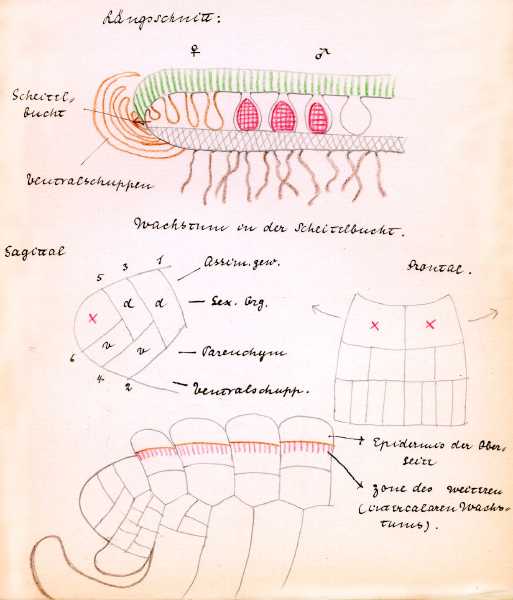 Längsschnitt:
♀ ♂
Scheitel-
bucht
Ventralschuppen
Wachstum in der Scheitelbucht.
Sagittal
Frontal.
5 3 1
Assim. gew.
d d
Sex. Org.
x
x x
v v
Parenchym
6 4 2
Ventralschupp.
Epidermis der Ober-
seite
Zone des weiteren
(intercalaren Wachs-
tums).